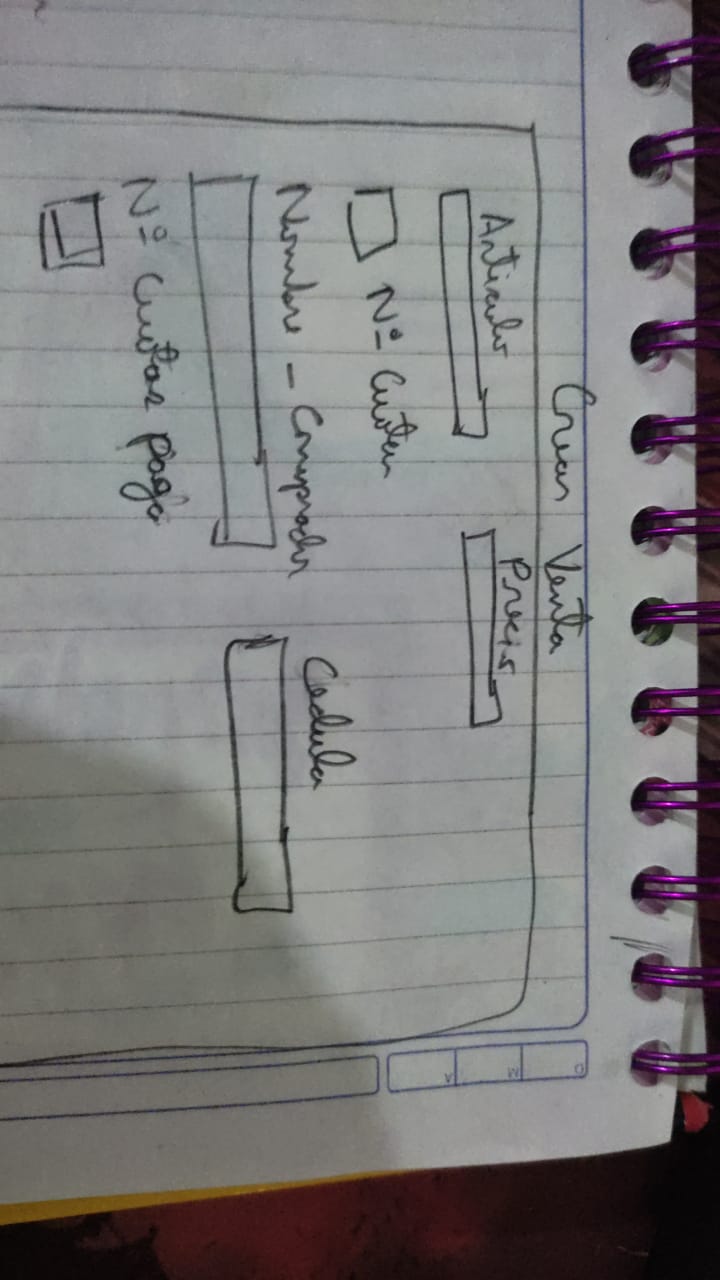 Crear Venta
Articulo Precio
Nº Cuotas
Nombre - Comprador Cedula
Nº Cuotas pago
D M A